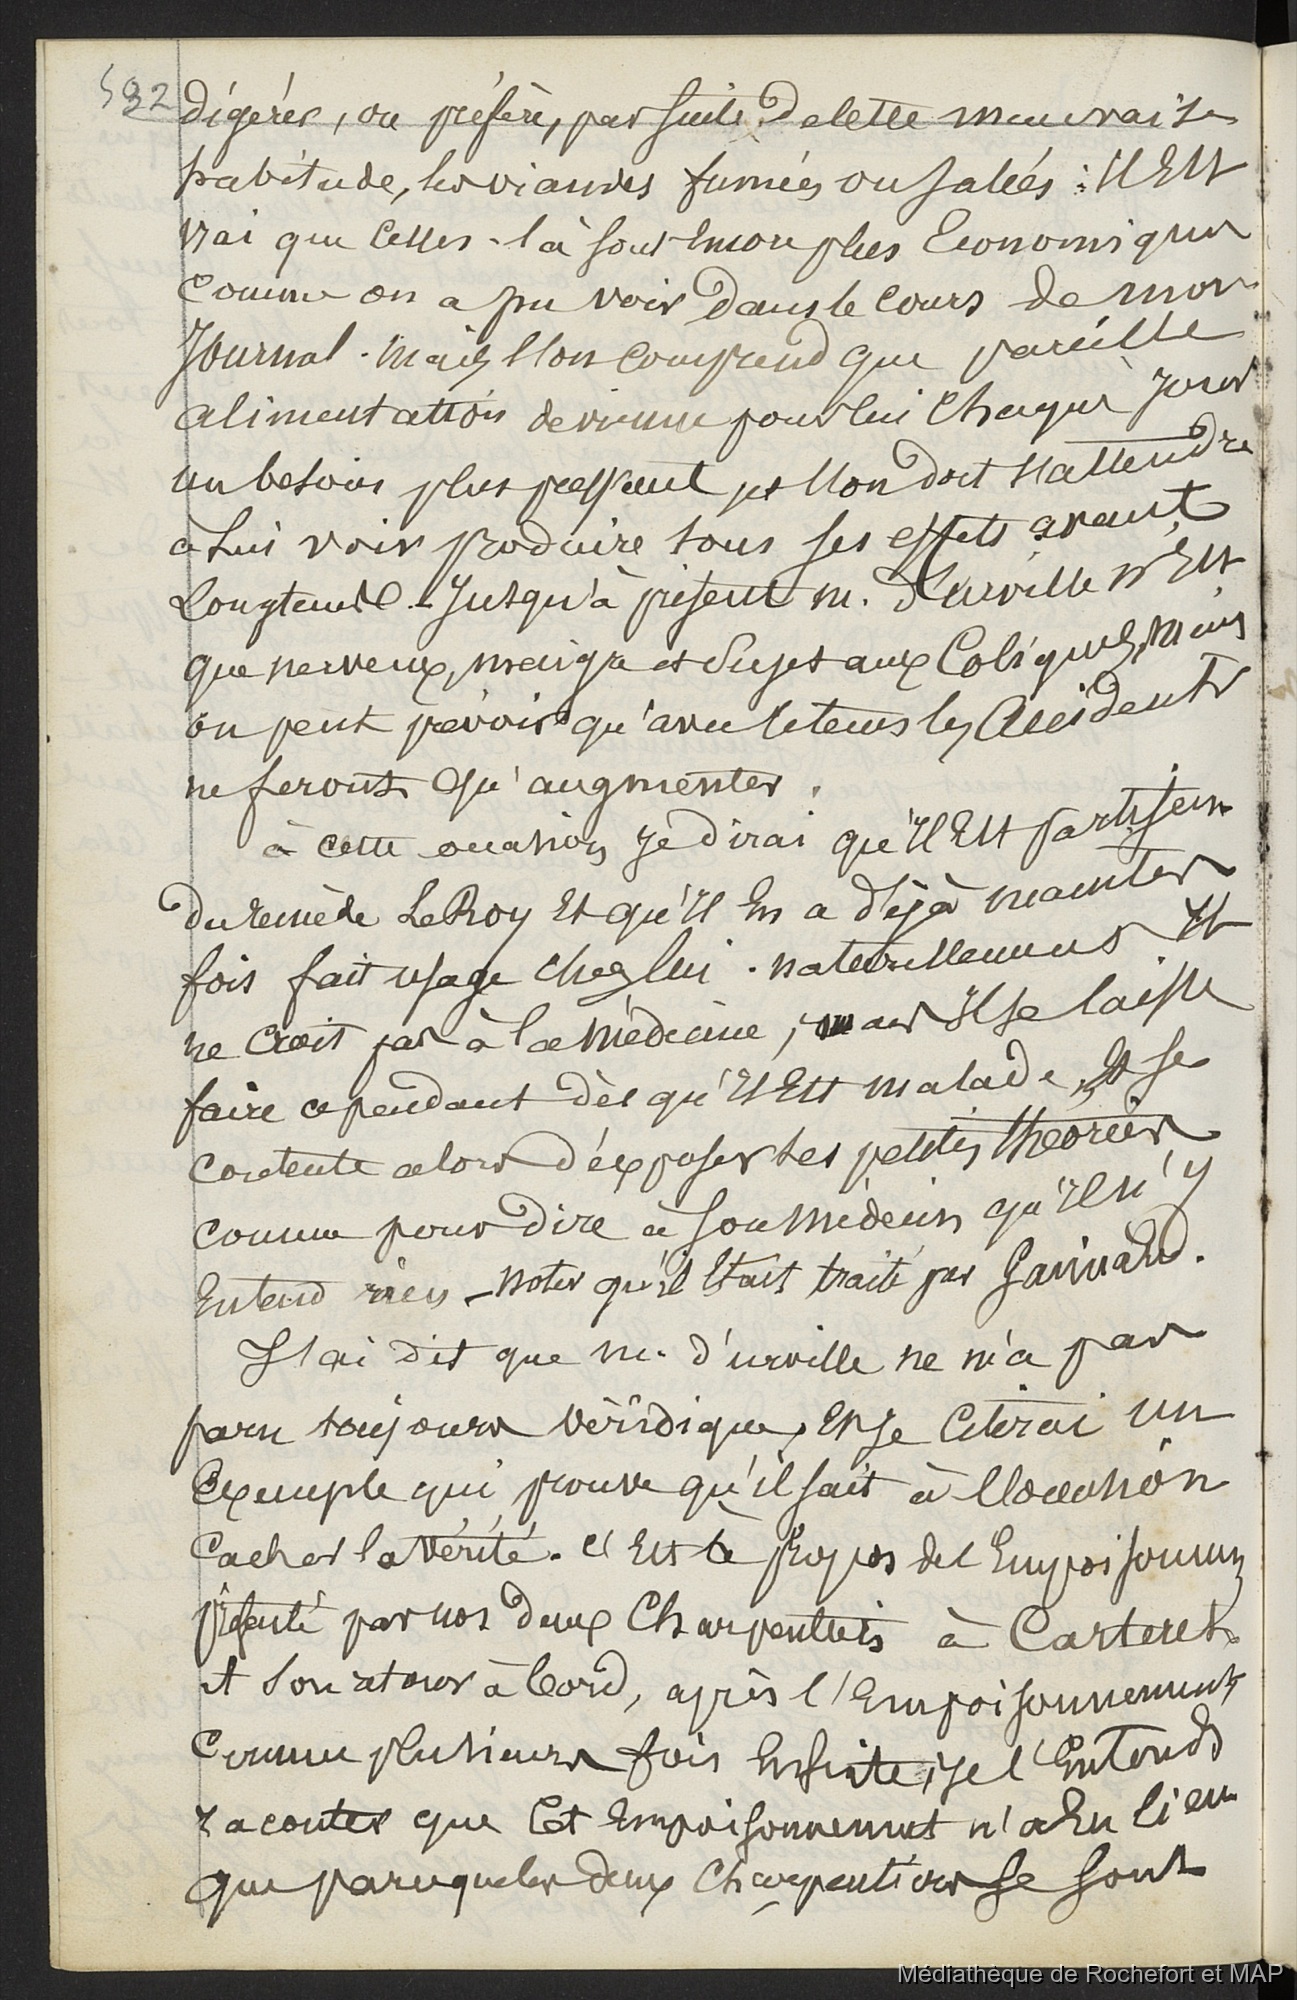 532
digérés, on préfère, par suite de cette mauvaise
habitude, les viandes fumées ou salées : il Est
vrai que celles-là sont encore plus Economiques
Comme on a pu voir dans le cours de mon
Journal. mais l'on comprend que pareille
alimentation devienne pour lui chaque jour
un besoin plus pressant et l'on doit s'attendre
à lui voir produire tous ses effets avant
Longtems. - Jusqu'à présent m. d'urville n'Est
que nerveux, maigre et sujet aux Coliques, mais
on peut prévoir qu'avec le tems les Accidents
ne feront qu'augmenter.
à cette occasion je dirai qu'il Est partisan
du remède LeRoy Et qu'il En a déjà maintes
fois fait usage chez lui. naturellement Il
ne croit pas à la médecine, mais Il se laisse
faire cependant dès qu'il Est malade, Et se
contente alors d'exposer ses petites théories
comme pour dire à son médecin qu'il n'y
Entend rien - notez qu'il Etait traité par Gaimard.
J'ai dit que m. d'urville ne m'a pas
paru toujours véridique, Et je Citerai un
Exemple qui prouve qu'il sait à l'occasion
Cacher la vérité. c'Est à propos de l'Empoisonnemt
présenté par nos deux Charpentiers à Carteret
et son retour à bord, après l'Empoisonnement
Comme plusieurs fois Ensuite, je l'Entends
raconter que cet Empoisonnement n'a Eu lieu
que parceque les deux Charpentiers se sont
Médiathèque de Rochefort et MAP